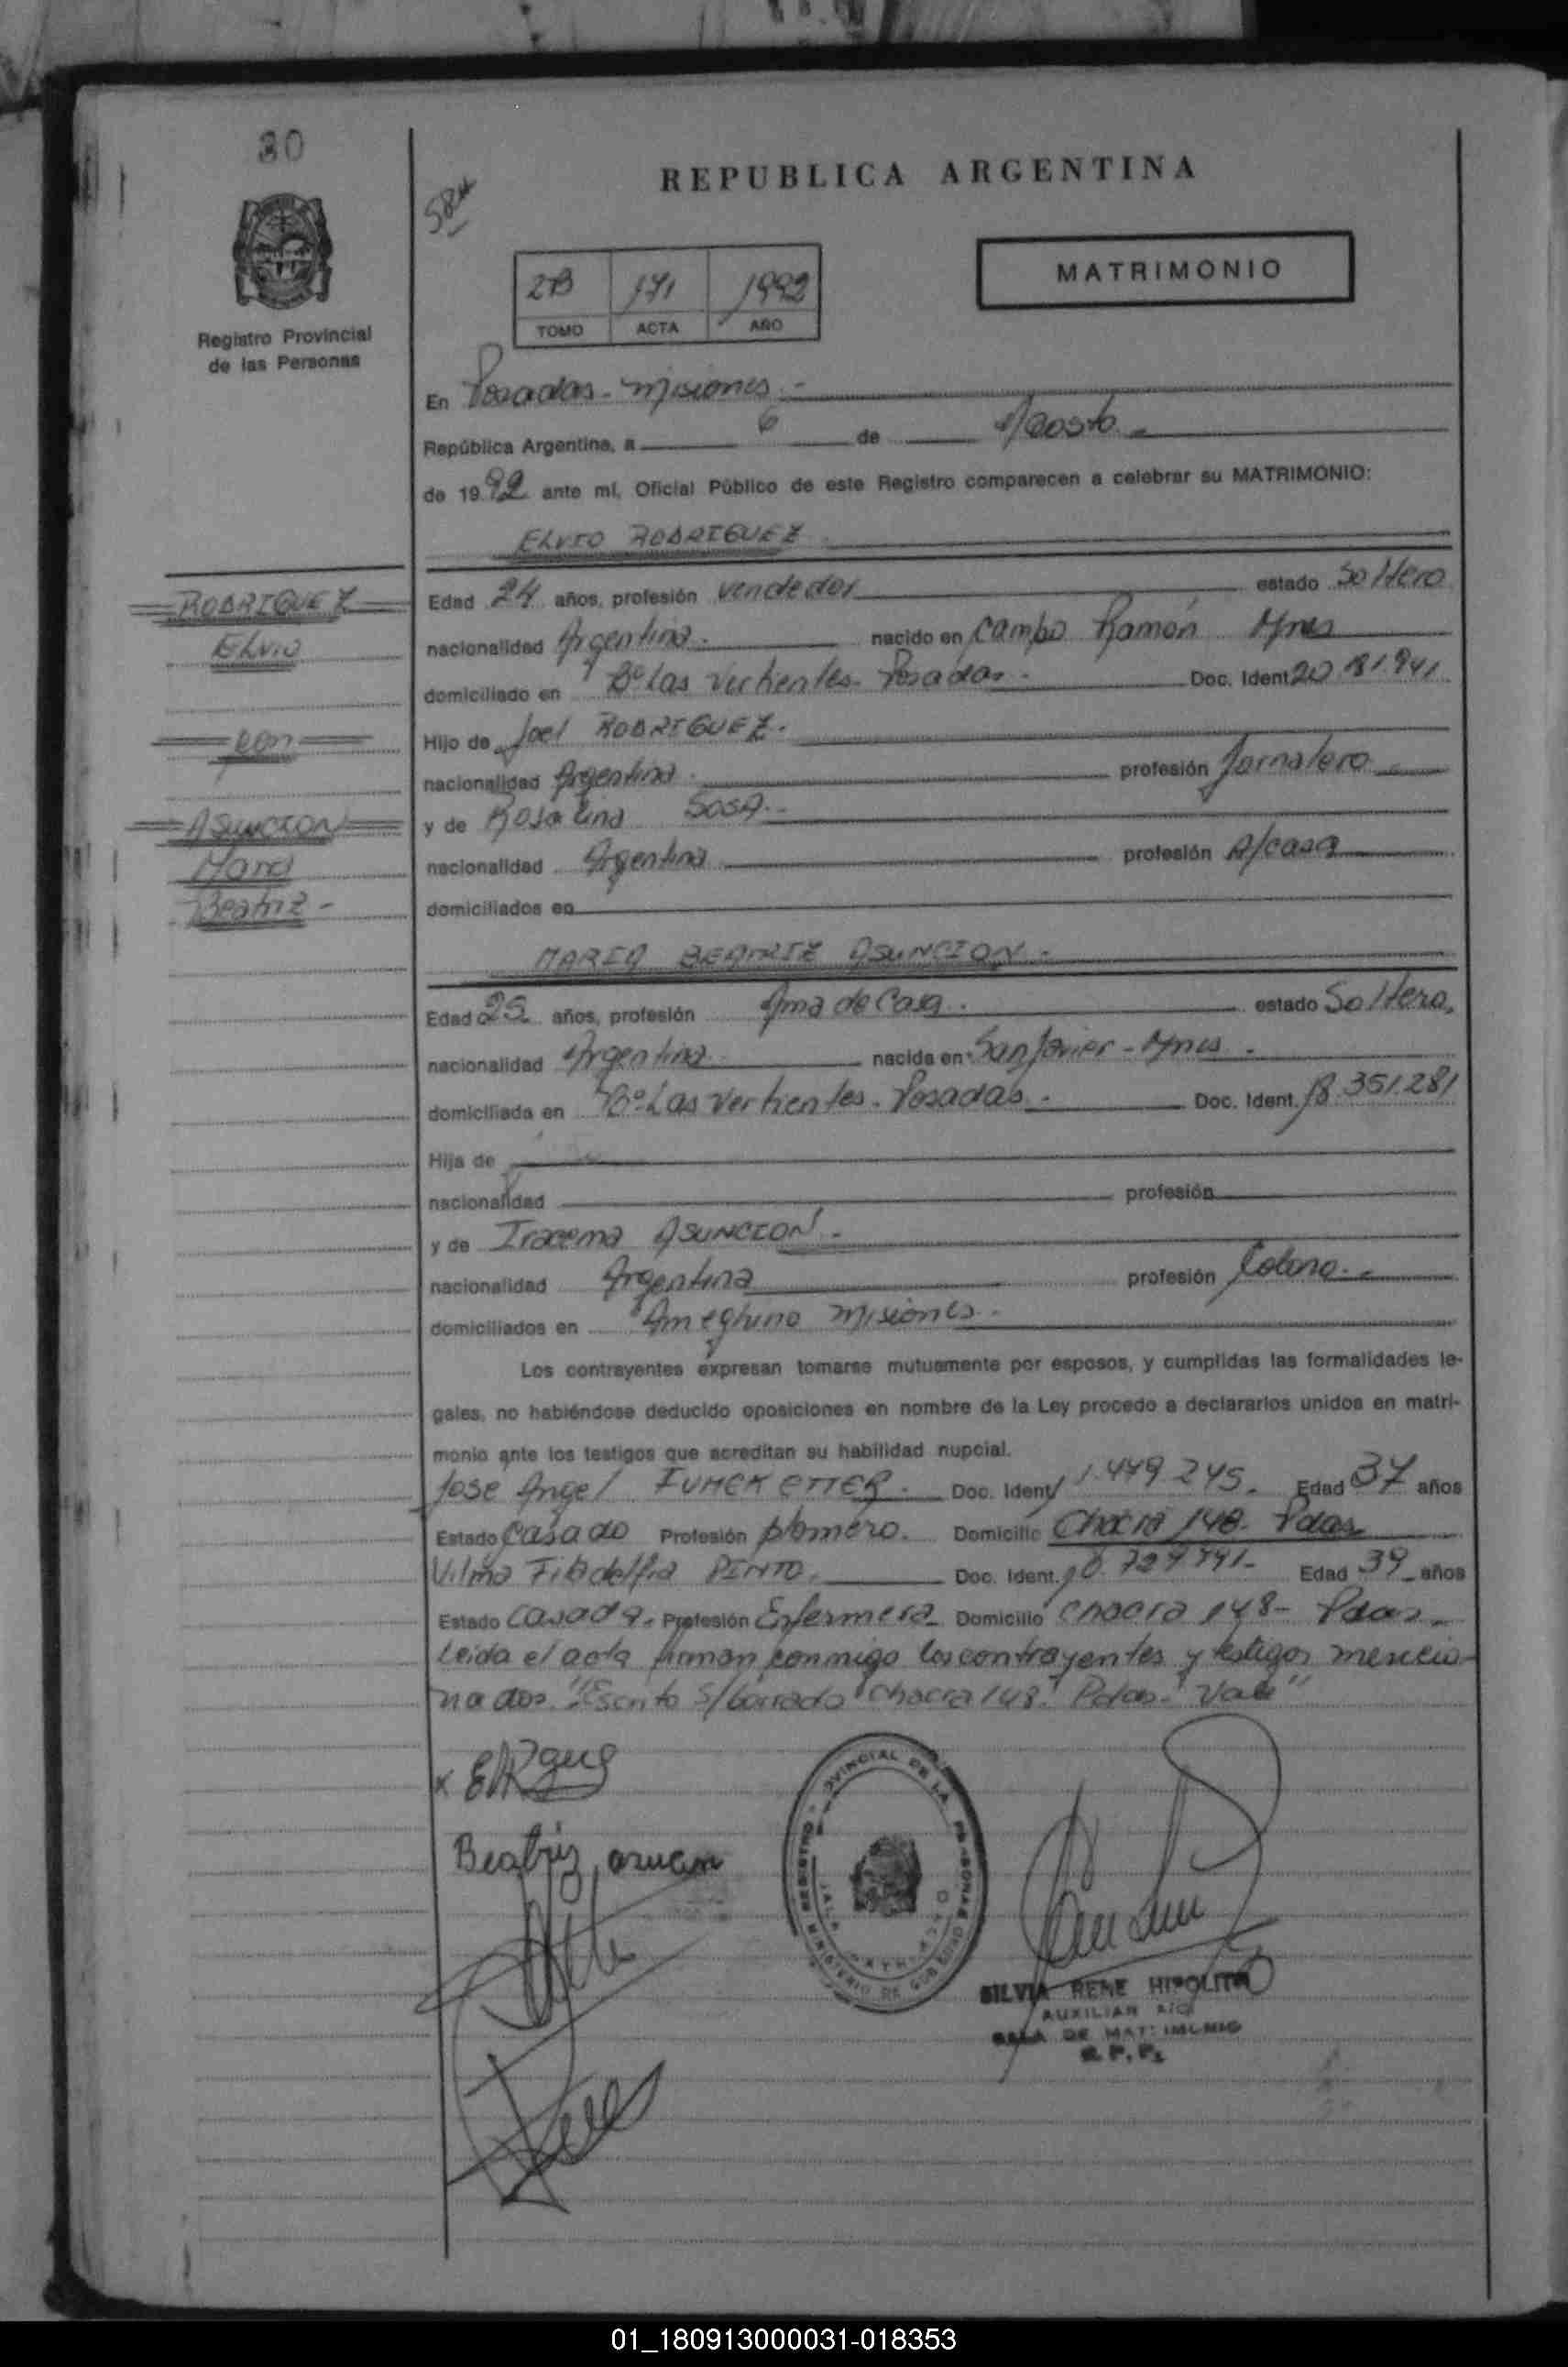 30
REPUBLICA ARGENTINA
584
2B 171 1992
TOMO ACTA AÑO
MATRIMONIO
Registro Provincial
de las Personas
En Posadas - Misiones.-
República Argentina, a 6 de Agosto
de 1992 ante mí, Oficial Público de este Registro comparecen a celebrar su MATRIMONIO:
ELVIO RODRIGUEZ
RODRIGUEZ
Elvio
con
ASUNCION
María
Beatriz -
Edad 24 años, profesión vendedor estado Soltero
nacionalidad Argentina. nacido en Campo Ramón Mnes
domiciliado en Bº Las Vertientes - Posadas. Doc. Ident 20.181.941
Hijo de Joel RODRIGUEZ.
nacionalidad Argentina. profesión Jornalero
y de Rosalina SOSA.-
nacionalidad Argentina profesión A/casa
domiciliados en
MARIA BEATRIZ ASUNCION.-
Edad 25 años, profesión Ama de Casa. estado Soltera.
nacionalidad Argentina nacida en San Javier - Mnes.
domiciliada en Bº Las Vertientes - Posadas. Doc. Ident. 18.351.281
Hija de
nacionalidad profesión
y de Iracema ASUNCION.
nacionalidad Argentina profesión Colona.-
domiciliados en Ameghino Misiones.
Los contrayentes expresan tomarse mutuamente por esposos, y cumplidas las formalidades le-
gales, no habiéndose deducido oposiciones en nombre de la Ley procedo a declararlos unidos en matri-
monio ante los testigos que acreditan su habilidad nupcial.
Jose Angel Doc. Ident 1.449.245. Edad 37 años
Estado Casado Profesión plomero. Domicilio Chacra 148 - Pdas
Vilma Filadelfia PINTO. Doc. Ident. Edad 39 años
Estado Casada. Profesión Enfermera Domicilio Chacra 148 - Pdas.
Leida el acta firman conmigo los contrayentes y testigos mencio-
nados. "Escrito s/borrado "Chacra 148. Pdas." Vale"
Beatriz
REGISTRO PROVINCIAL DE LAS PERSONAS
MINISTERIO DE GOBIERNO
SILVIA RENE HIPOLITO
AUXILIAR
SALA DE MATRIMONIO
R. P. P.
01_180913000031-018353